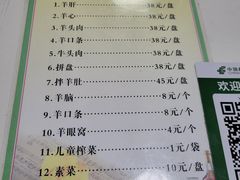 1.羊肝 38元/盘
2.羊心 38元/盘
3.羊头肉 38元/盘
4.羊口条 38元/盘
5.牛头肉 38元/盘
6.拼盘 38元/盘
7.拌羊肚 45元/盘
8.羊脑 8元/个
9.羊口条 8元/个
10.羊眼窝 4元/个
11.儿童榨菜 1元/袋
12.素菜 10元/盘
欢迎